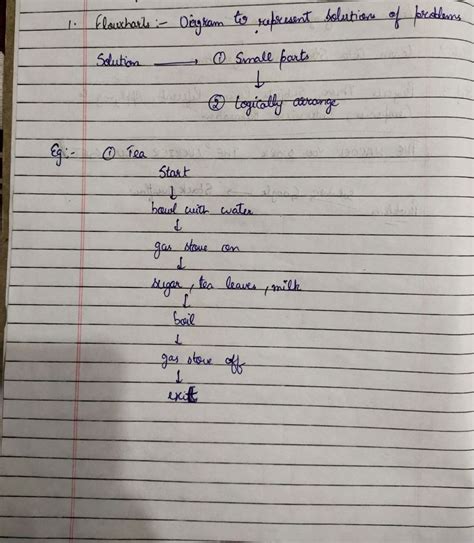 1. Flowcharts :- Diagram to represent solutions of problems
Solution → ① Small parts
↓
② Logically arrange
Eg:- ① Tea
Start
↓
bowl with water
↓
gas stove on
↓
sugar, tea leaves, milk
↓
boil
↓
gas stove off
↓
exit